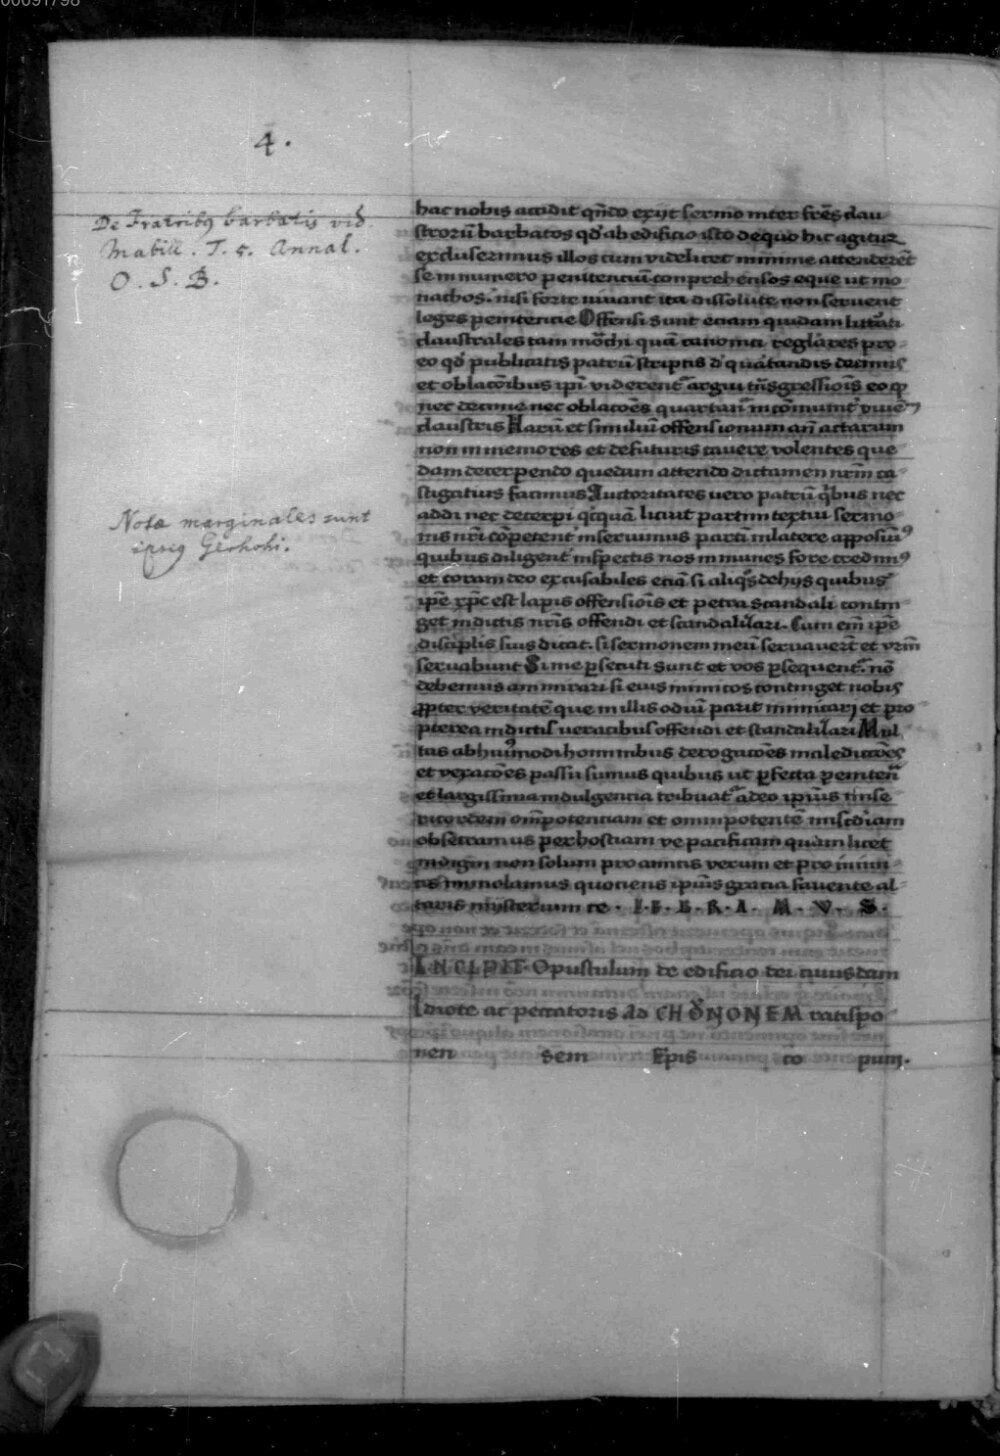 00091798
4.
De Fratribꝯ barbatis vid.
Mabill. T. 5. Annal.
O. S. B.
hac nobis accidit qn̄do exijt sermo inter fr̄es clau
strorū barbatos qd̕ ab edificio isto de quo hic agitur
exclusermus illos cum videlicet minime attenderēt
se in numero penitenciū conprehensos eque ut mo
nachos. nisi forte vivant ita dissolute non servent
leges penitencie Offensi sunt eciam quidam litt̕ati
claustrales tam mōchi quā canonici reglāres pro
eo qd̕ publicatis patrū scriptis d̕ quartandis decimis
et oblacōibus ipi viderent̄ argui tn̄sgressiōis eo qꝫ
nec decime nec oblacōes quartant̄ in
claustris Harū et similiū offensionum an̄ actarum
non in memores et de futuris cavere volentes que
dam decerpendo quedam attendo dictamen nr̄m ca
stigatius facimus Auctoritates vero patrū q̄bus nec
addi nec decerpi q̄cquā licuit partim textui sermo
nis nr̄i cōpetent̕ inseruimus partī in latere apposuimꝰ
quibus diligent̕ inspectis nos inmunes fore credimꝰ
et coram deo excusabiles eciā si aliq̄s de hijs quibus
ipē xp̄c est lapis offensiōis et petra scandali contin
get in dictis nr̄is offendi et scandalizari. Cum em̄ ipē
discip̄lis suis dicat. si sermonem meū servaverūt et vr̄m
servabunt Si me ꝑsecuti sunt et vos ꝑsequent̄. nō
debemus ammirari si eius inimicos continget nobis
ꝓpter veritatē que in illis odiū parit inimicari et pro
pterea in dictis veracibus offendi et scandalizari Mul
tas ab huiꝰmodi hominibus derogacōes maledictōes
et vexacōes passi sumus quibus ut ꝑfecta penitēn
et largissima indulgencia tribuat̄ a deo ipiūs
omīpotenciam et omnipotentē mīscdīam
obsecramus per hostiam ve pacificam quam licet
indigni non solum pro amicis verum et pro inimi
cis immolamus quociens ipiūs gracia favente al
taris mysterium ce. L. E. B. R. A. M. V. S.
Notæ marginales sunt
ipsiꝯ Gerhohi.
INCIPIT. Opusculum de edificio dei cuiusdam
Idiote ac peccatoris Ad CHŮNONEM ratispo
nen sem Epis co pum.